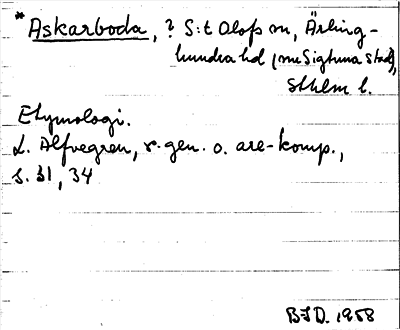 *Askarboda, ? S:t Olofs sn, Ärling-
hundra hd (nu Sigtuna stad),
Sthlm l.
Etymologi.
L. Alfvegren, r-gen. o. are-komp.,
s. 31, 34
BJD. 1958